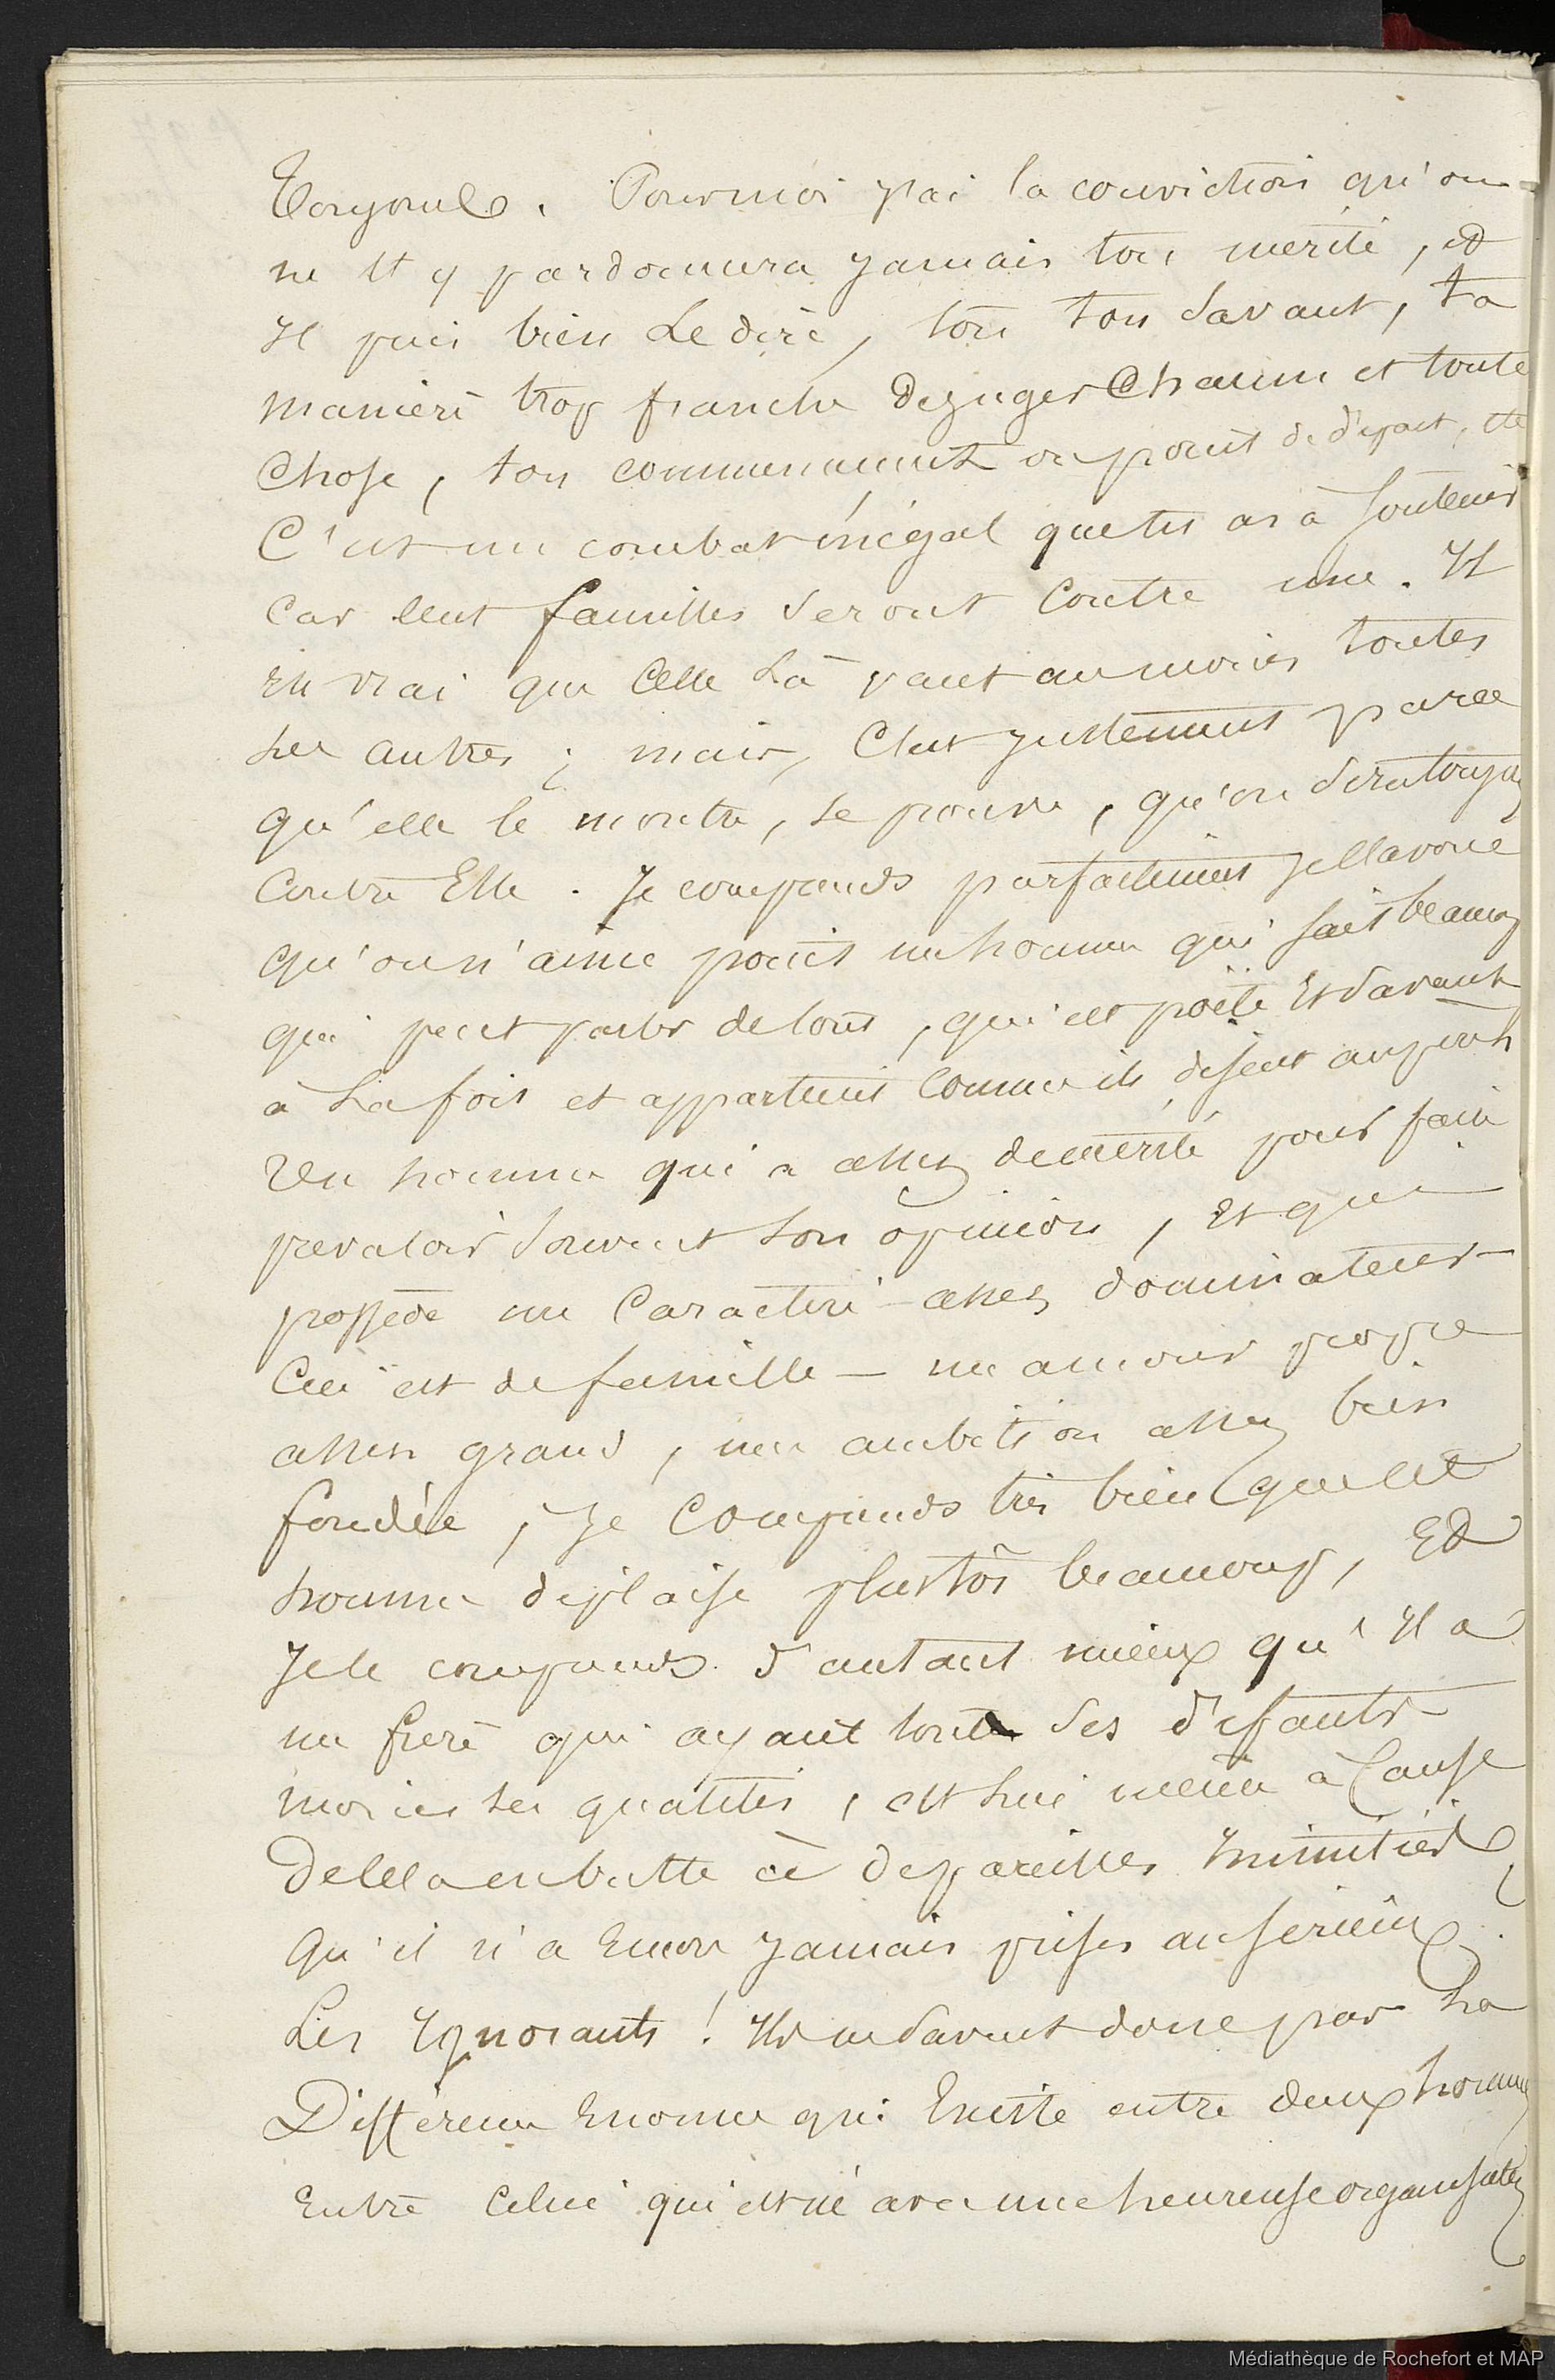 toujours. Pour moi j'ai la conviction qu'on
ne t'y pardonnera jamais ton merite, et
Je puis bien Le dire, ton ton Savant, ta
maniere trop franche de juger Chacun et toute
Chose, ton commencement ou point de départ, etc
C'est un combat inégal que tu as à soutenir
Car cent familles Seront Contre une. Il
est vrai que Celle Là vaut au moins toutes
les autres ; mais, C'est justement parce
qu'elle le montre, le prouve, qu'on Sera toujours
Contre Elle. Je comprends parfaitement Je l'avoue
qu'on n'aime point un homme qui sait beaucoup
qui peut parler de tout, qui est poëte Et Savant
à La fois et appartenant Comme ils disent aux
Un homme qui a assez de mérite pour faire
prevaloir Souvent Son opinion, Et qui
possède un Caractere assez dominateur
Ceci est de famille — un amour propre
assez grand, une ambition assez bien
fondée, Je Comprends très bien que cet
homme déplaise plustôt beaucoup, Et
Je le comprends d'autant mieux qu'Il a
un frere qui ayant tout Ses défauts
moins ses qualités, est lui même à Cause
de cela en butte à de pareilles Inimitiés
Qu'il n'a Encore jamais prises au serieux.
Les Ignorants ! Ils ne Savent donc pas La
Différence Enorme qui Existe entre deux hommes
Entre Celui qui est né avec une heureuse organisation
Médiathèque de Rochefort et MAP